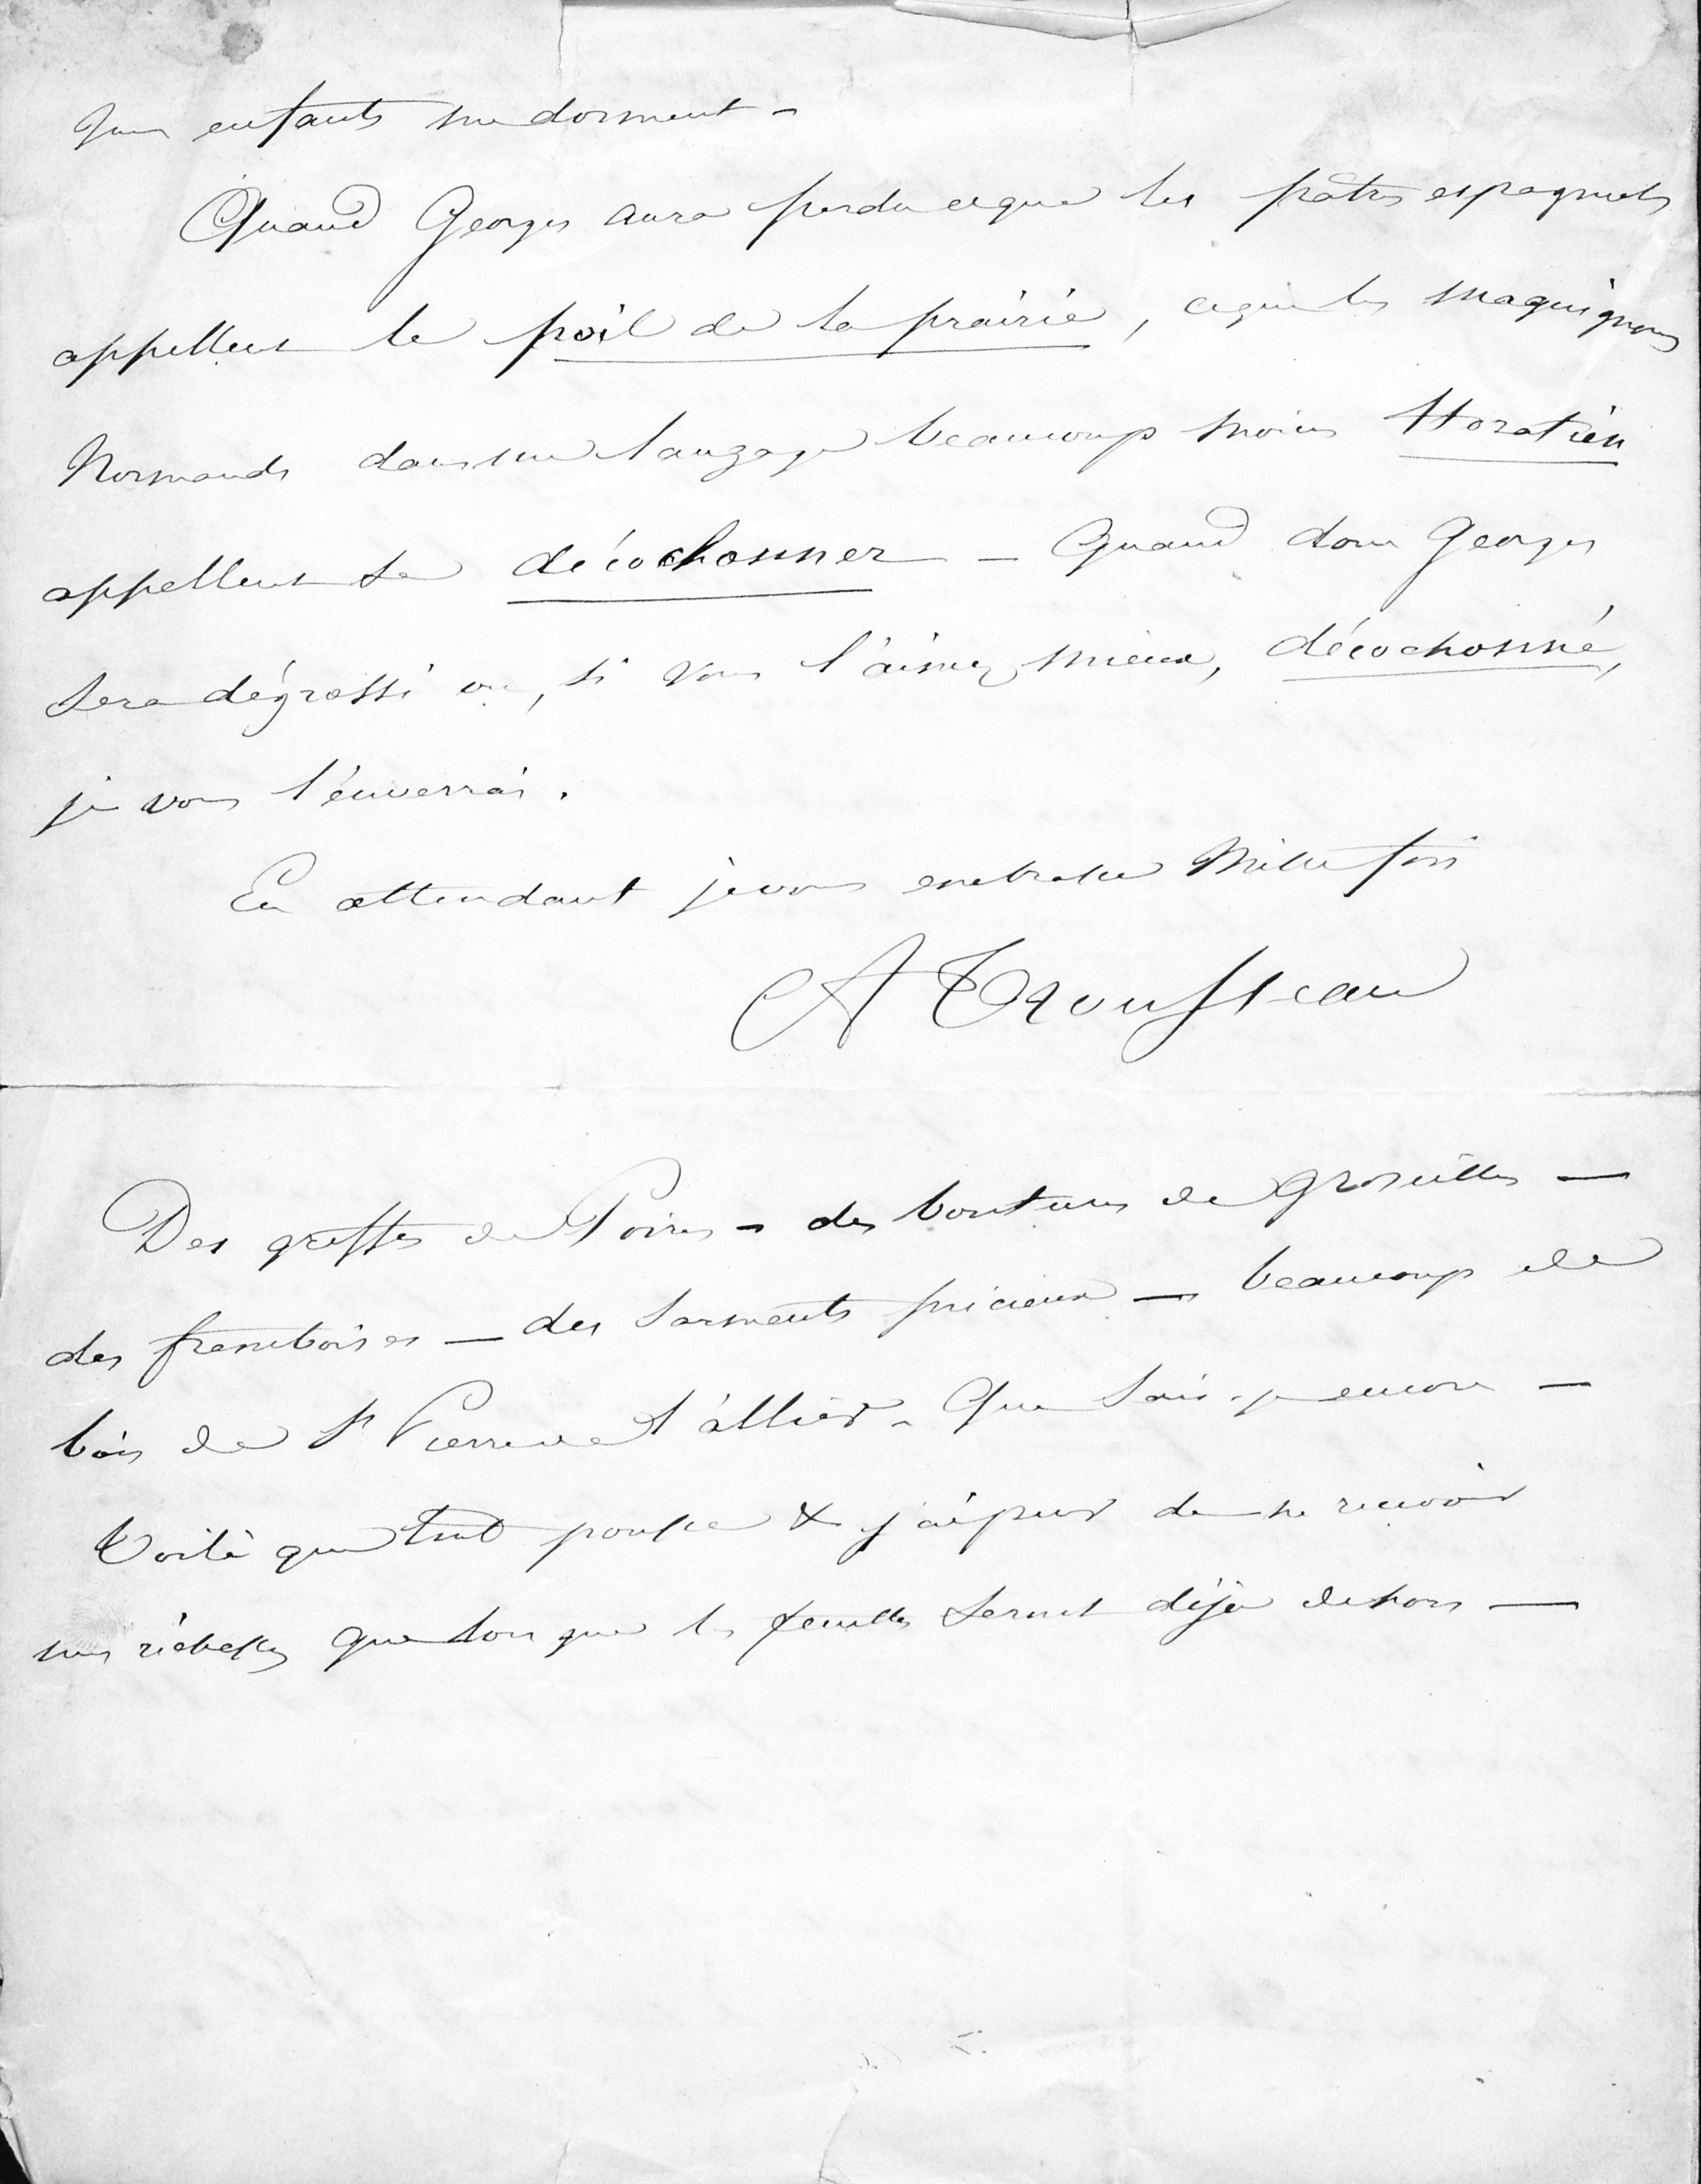 enfants me donnent -
Quand Georges aura perdu ce que les pâtres espagnols
appellent le poil de la prairie, ce que les maquignons
Normands dans un langage beaucoup moins Horatien
appellent se décochonner — Quand donc Georges
sera dégrossi ou, si vous l'aimez mieux, décochonné,
je vous l'enverrai.
En attendant je vous embrasse mille fois
A Trousseau
Des greffes de Poires - des boutures de groseilles —
des framboises — des sarments précieux — beaucoup de
bois de St Pierre de l'allier - Que sais-je encore —
Voilà que tout pousse & j'ai peur de ne recevoir
mes richesses que lors que les feuilles seront déjà dehors —